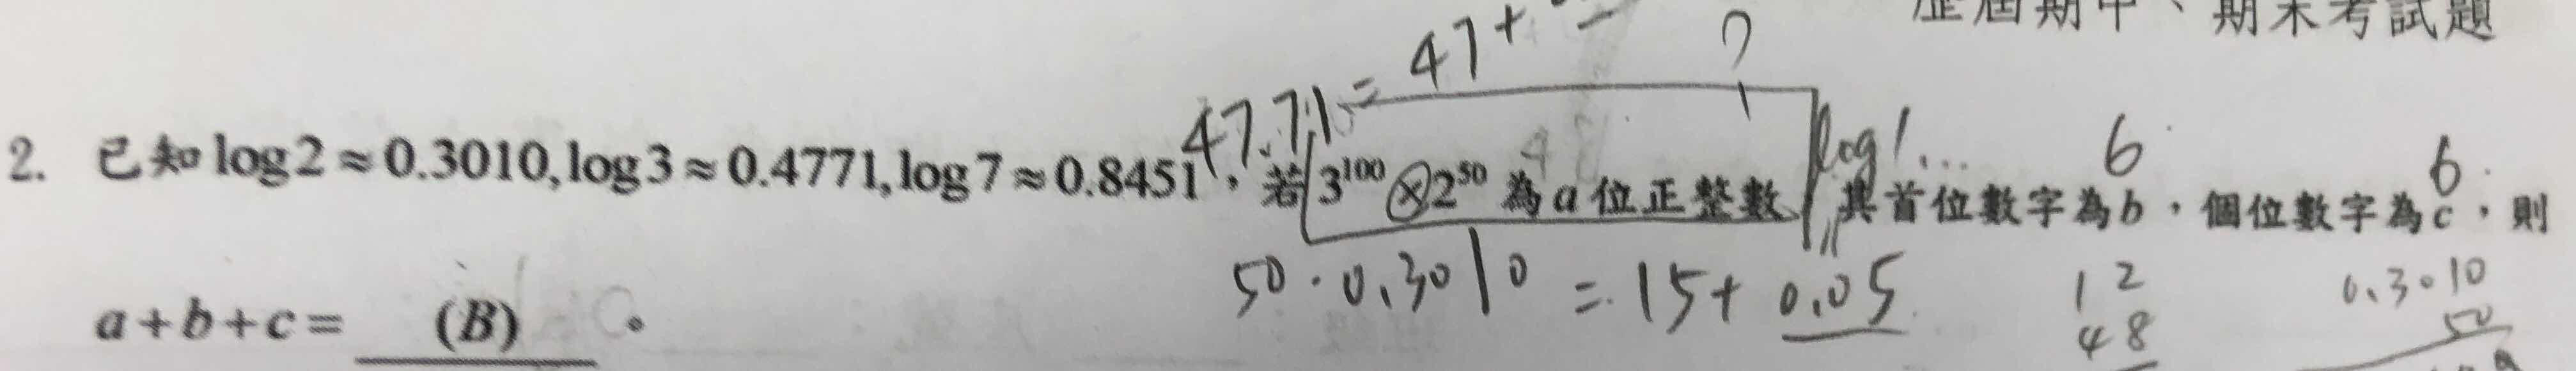 歷屆期中、期末考試題
47.71=47+
2. 已知 log2≈0.3010,log3≈0.4771,log7≈0.8451,若 3¹⁰⁰⊗2⁵⁰ 為 a 位正整數,其首位數字為 b,個位數字為 c,則
48
log1...
6
6
a+b+c= (B) 。
50·0.3010=15+0.05
12
48
0.3010
50